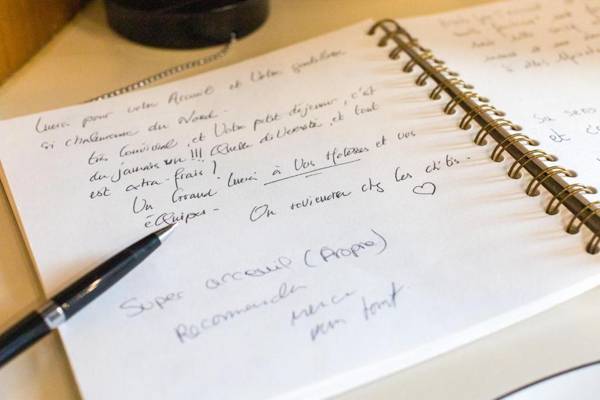 Merci pour votre Accueil et Votre gentillesse
si chaleureuse du Nord.
très convivial, et Votre petit déjeuner, c'est
du jamais vu !!! Quelle diversité, et tout
est extra-frais !
Un Grand Merci à Vos Hôtesses et vos
équipes. On reviendra chez les ch'tis. ♡
Super acceuil (Propre)
Recommenda
Merci
pour tout
Sa sera
et c